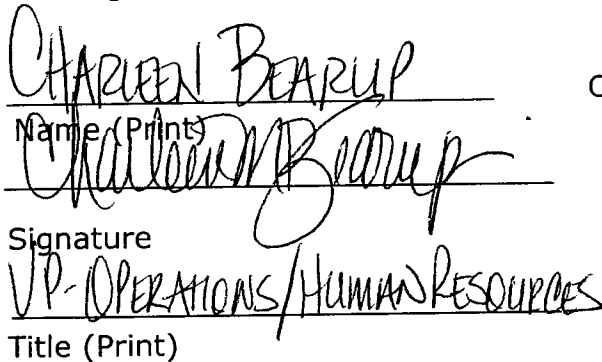 CHARLEEN BEARUP
Name (Print)
Charleen M Bearup
Signature
VP-OPERATIONS/HUMAN RESOURCES
Title (Print)